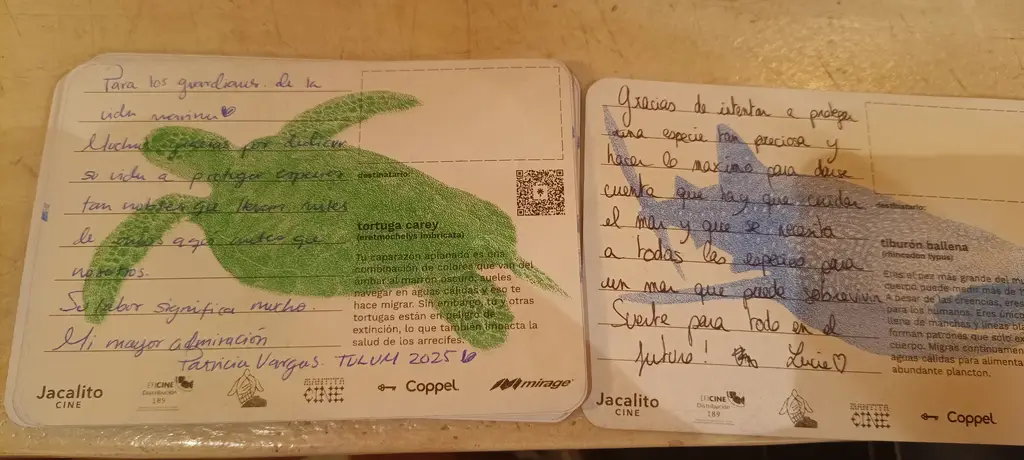 Para los guardianes de la
vida marina
Muchas gracias por dedicar
su vida a proteger especies
tan nobles que llevan miles
de años aquí antes que
nosotros.
Su labor significa mucho.
Mi mayor admiración
Patricia Vargas. TULUM 2025
destinatario:
tortuga carey
(eretmochelys imbricata)
Tu caparazón aplanado es una
combinación de colores que van del
ámbar al marrón oscuro, sueles
navegar en aguas cálidas y eso te
hace migrar. Sin embargo, tú y otras
tortugas están en peligro de
extinción, lo que también impacta la
salud de los arrecifes.
Jacalito
CINE
Distribución
189
MANTITA
CINE
Coppel
mirage
Gracias de intentar a proteger
una especie tan preciosa y
hacer lo maximo para darse
cuenta que hay que cuidar
el mar y que se necesita
a todas las especies para
un mar que puede sobrevivir
Suerte para todo en el
futuro! Lucie
destinatario:
tiburón ballena
(rhincodon typus)
Eres el pez más grande del m
cuerpo puede medir más de
A pesar de las creencias, eres
para los humanos. Eres únic
lleno de manchas y líneas bla
forman patrones que solo ex
cuerpo. Migras continuamen
aguas cálidas para alimenta
abundante plancton.
Jacalito
CINE
Distribución
189
MANTITA
CINE
Coppel